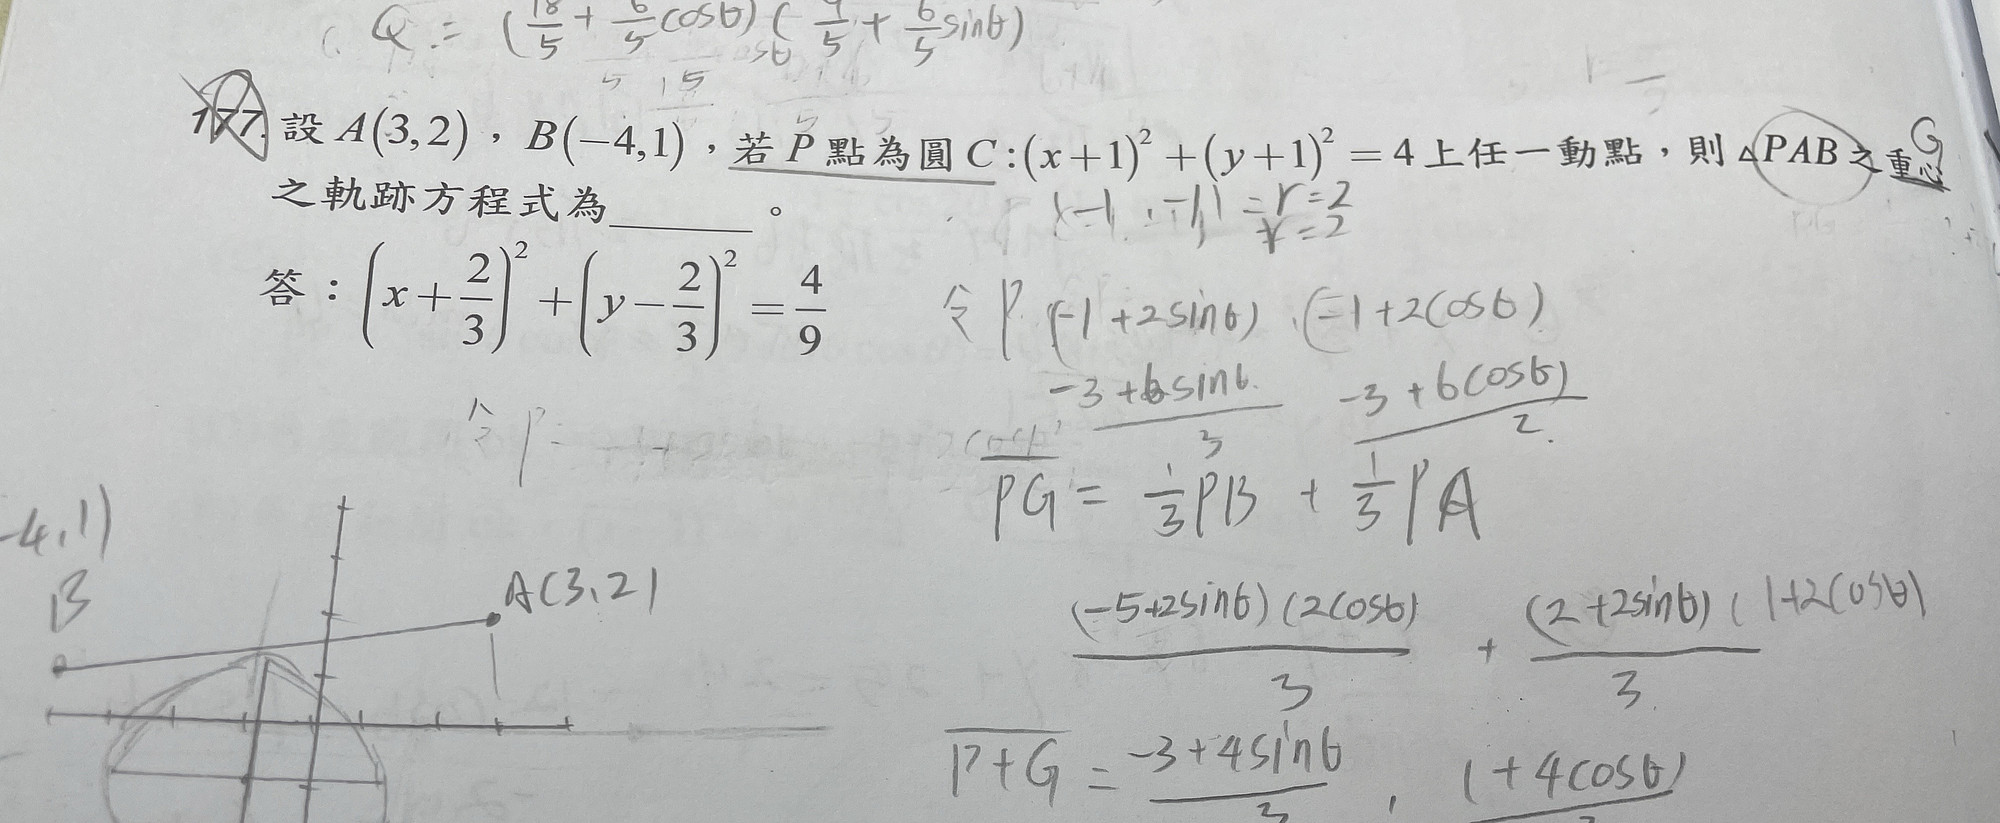 Q = (18/5 + 6/5 cosθ) ( 9/5 + 6/5 sinθ)
177. 設 A(3,2)，B(−4,1)，若 P 點為圓 C:(x+1)²+(y+1)²=4 上任一動點，則 △PAB 之重心 G
之軌跡方程式為______。
(-1, -1) = r=2
r=2
答：(x+2/3)²+(y−2/3)²=4/9
令 P (-1+2sinθ), (-1+2cosθ)
-3+6sinθ/3 -3+6cosθ)/2
令 P =
PG = 1/3 PB + 1/3 PA
-4,1)
B
A(3,2)
(-5+2sinθ)(2cosθ)/3 + (2+2sinθ)(1+2cosθ)/3
P+G = -3+4sinθ/3, (1+4cosθ)